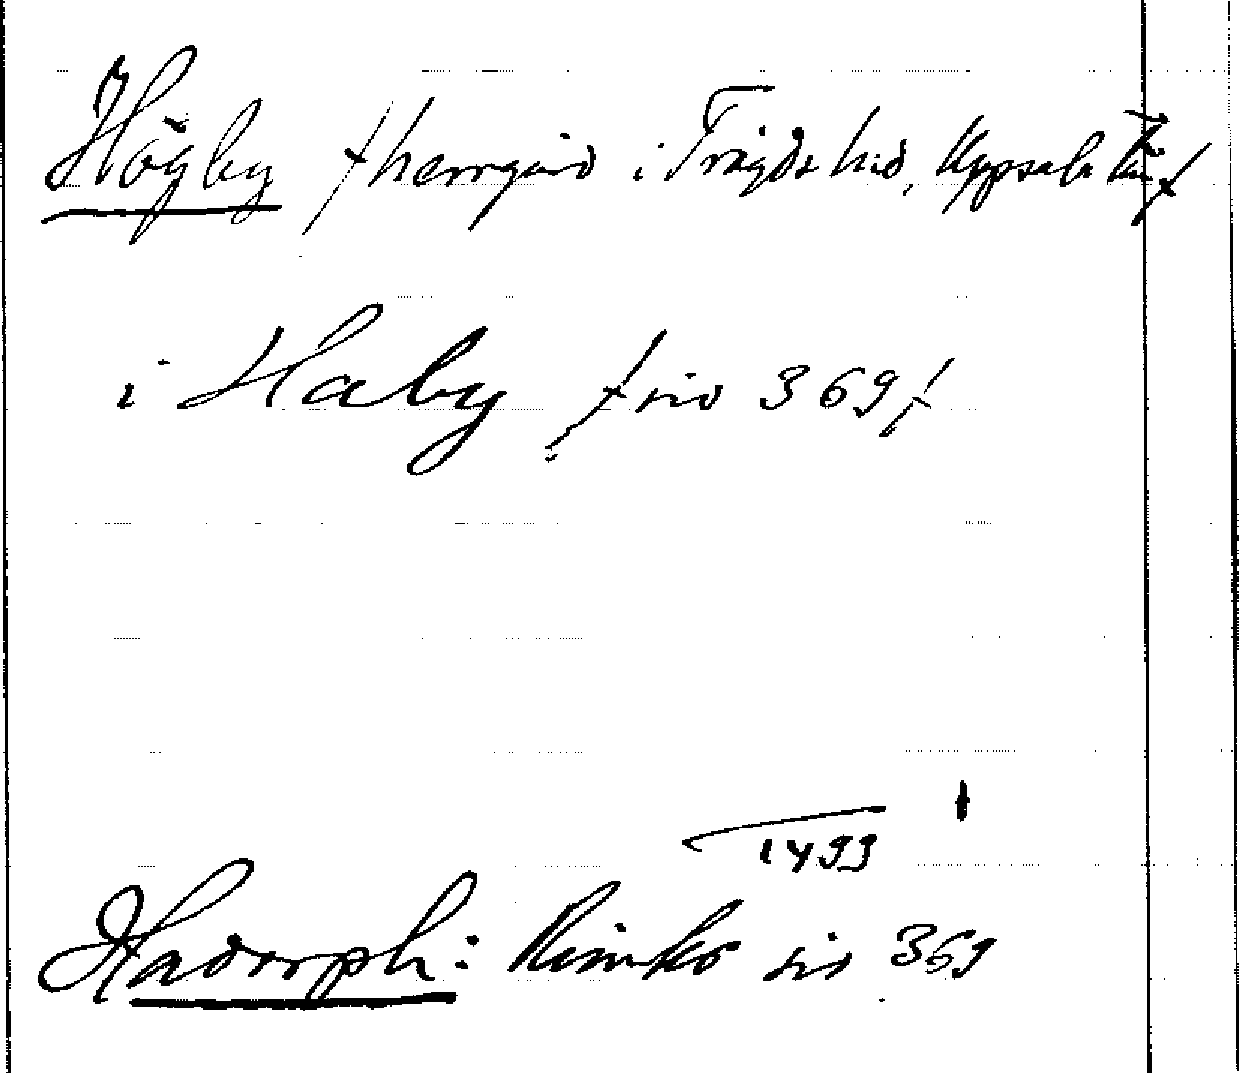 Högby /herrgård i Trögds häd, Uppsala län/
i Haby /sid 369/
1499
Hadorph: Rimkr sid 369